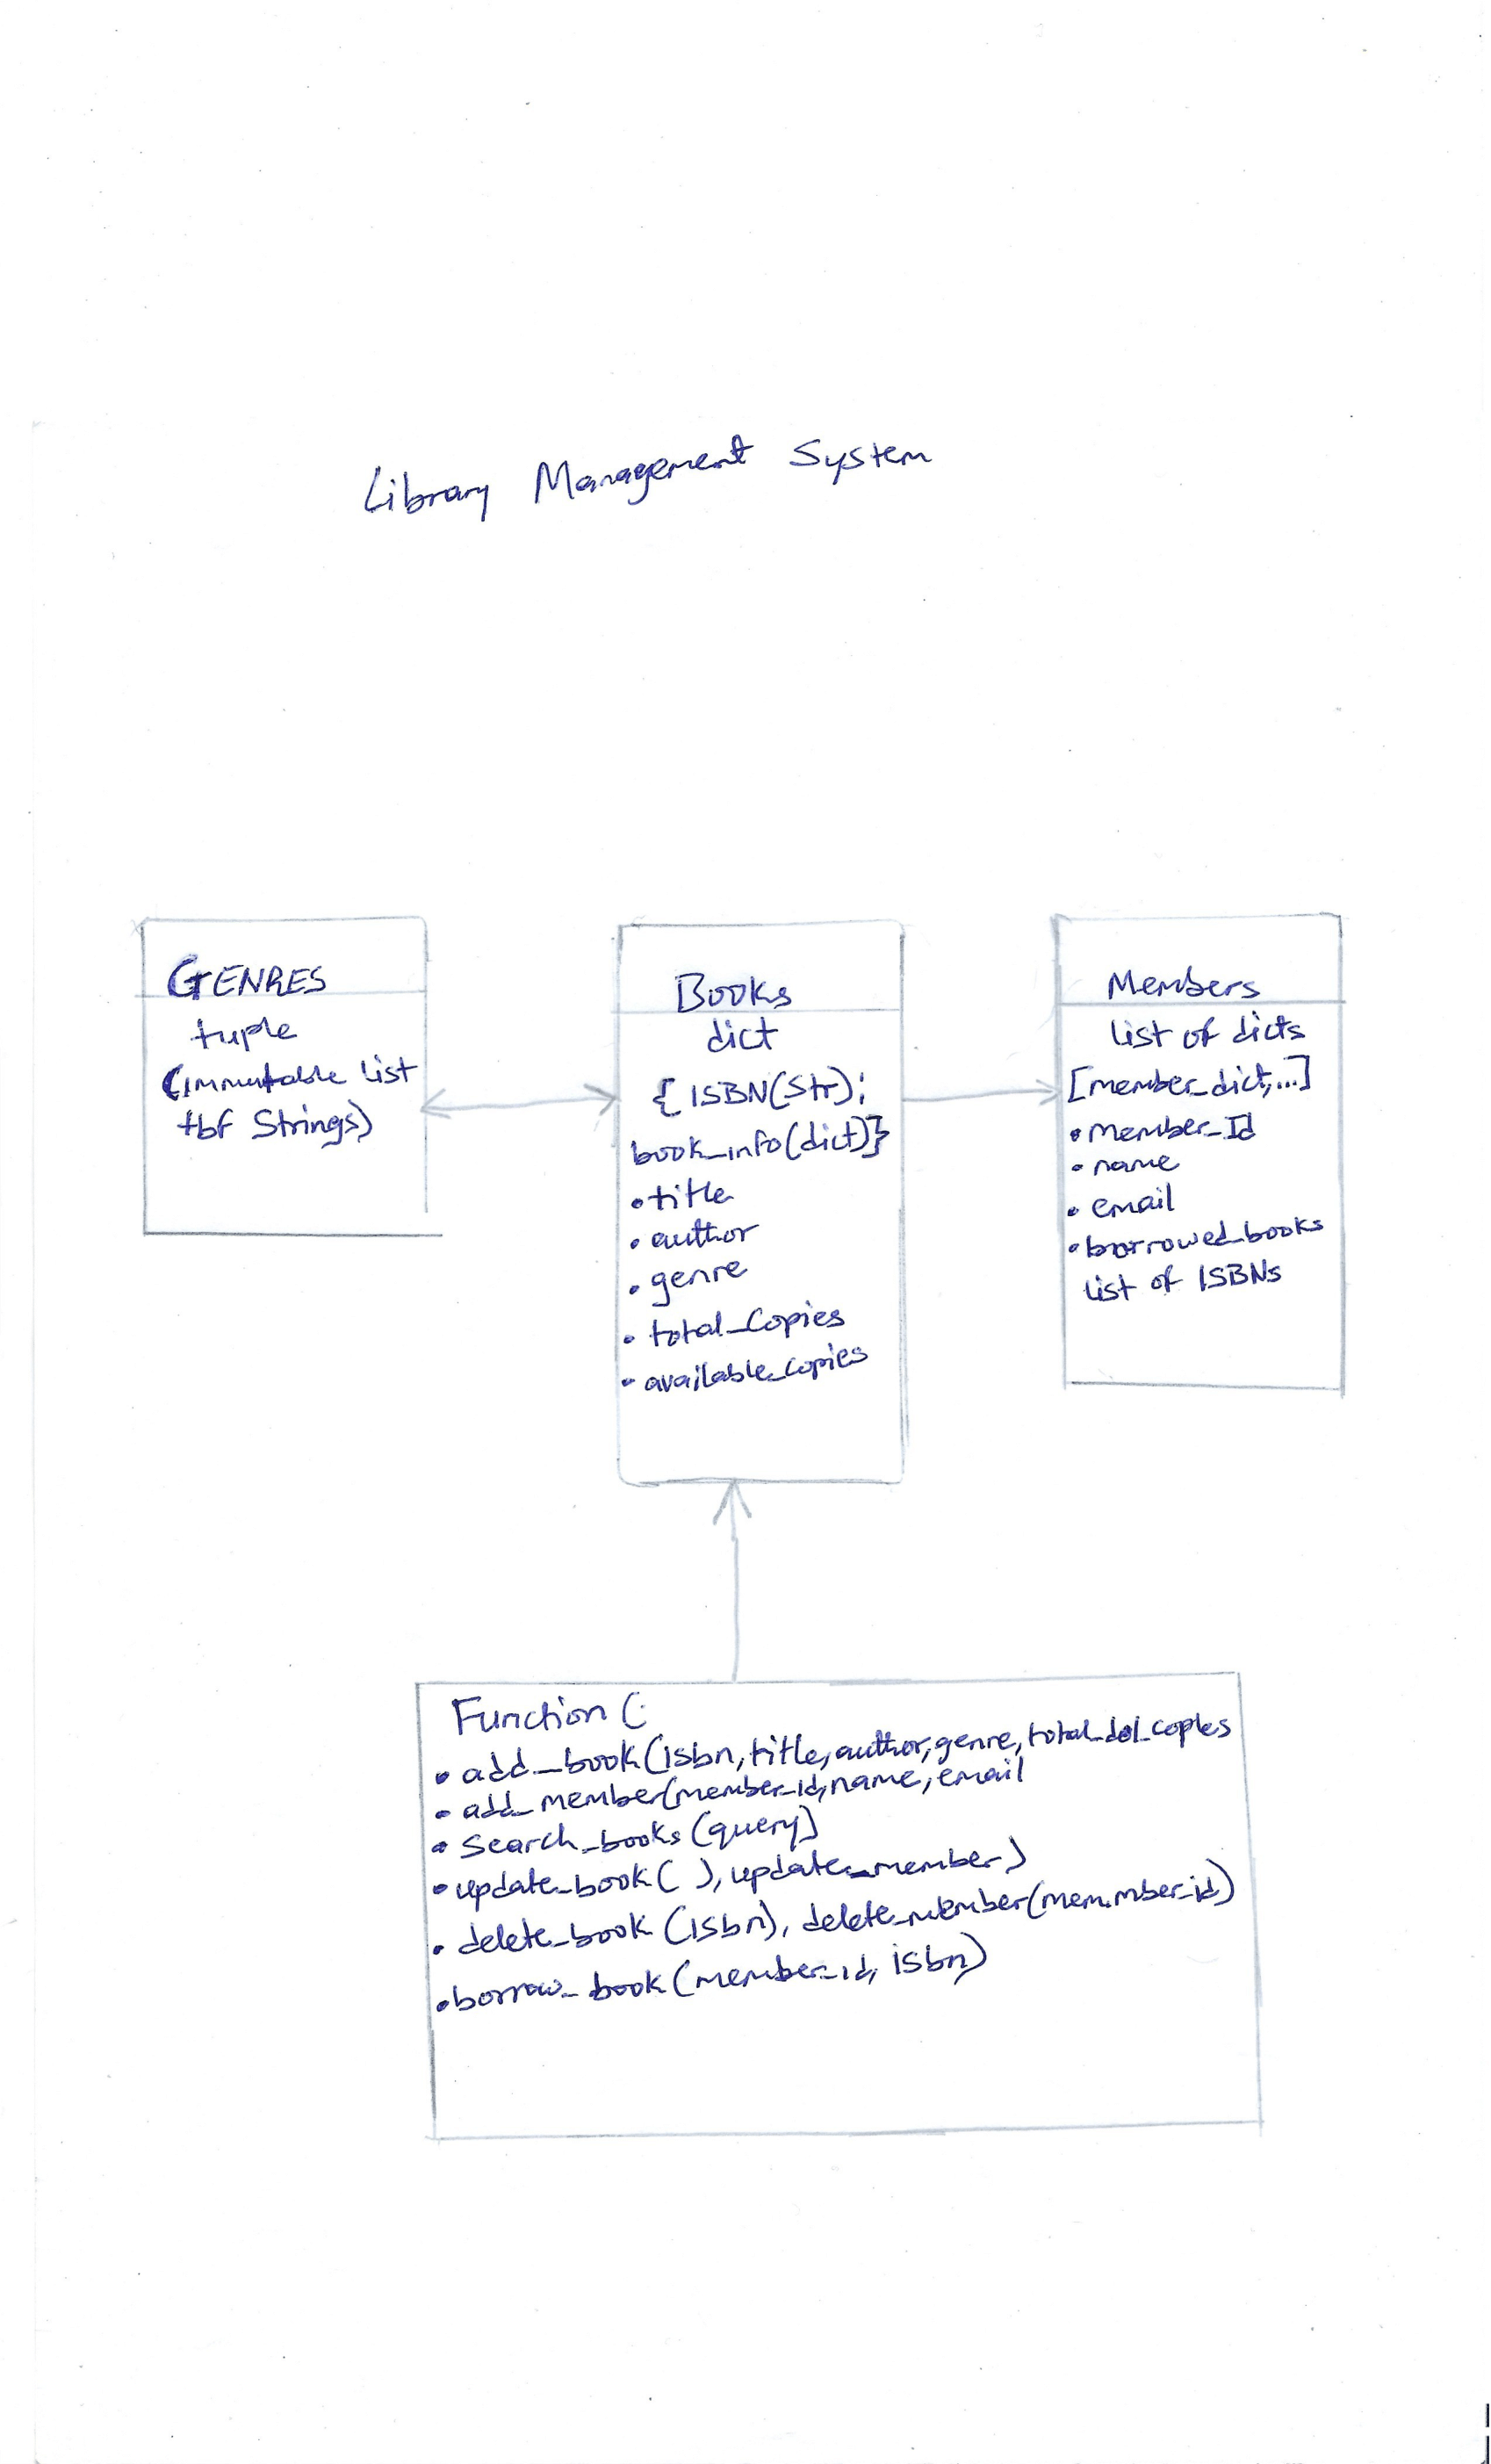 Library Management System
GENRES
tuple
(immutable list
tbf Strings)
Books
dict
{ISBN(Str):
book_info(dict)}
•title
•author
•genre
•total_Copies
•available_copies
Members
list of dicts
[member_dict,...]
•member_Id
•name
•email
•borrowed_books
list of ISBNs
Function (:
•add_book(isbn,title,author,genre,total_dol_copies
•add_member(member_id,name,email
•Search_books(query)
•update_book( ),update_member)
•delete_book(isbn), delete_member(mem.mber_id)
•borrow_book(member_id, isbn)